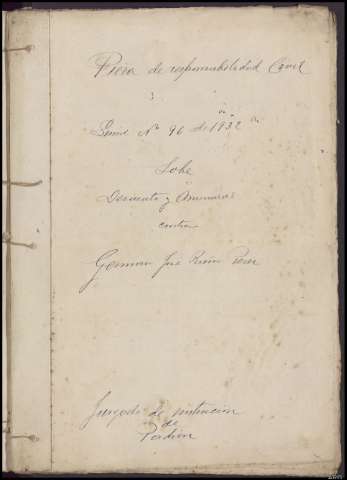 Pieza de responsabilidad Civil
Sumº Nº 90 de 1932
Sobre
Desacato y Amenazas
contra
German José Perez
Juzgado de instruccion
de